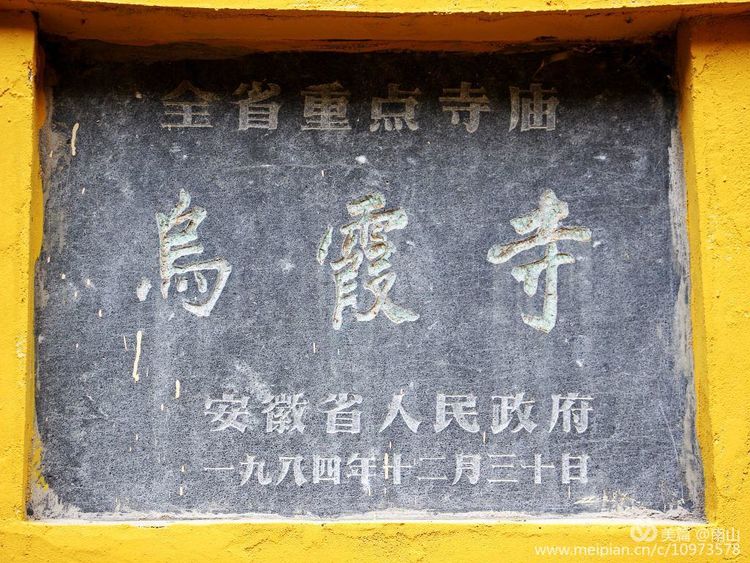 全省重点寺庙
烏霞寺
安徽省人民政府
一九八四年十二月三十日
美篇 @南山
www.meipian.cn/c/10973578